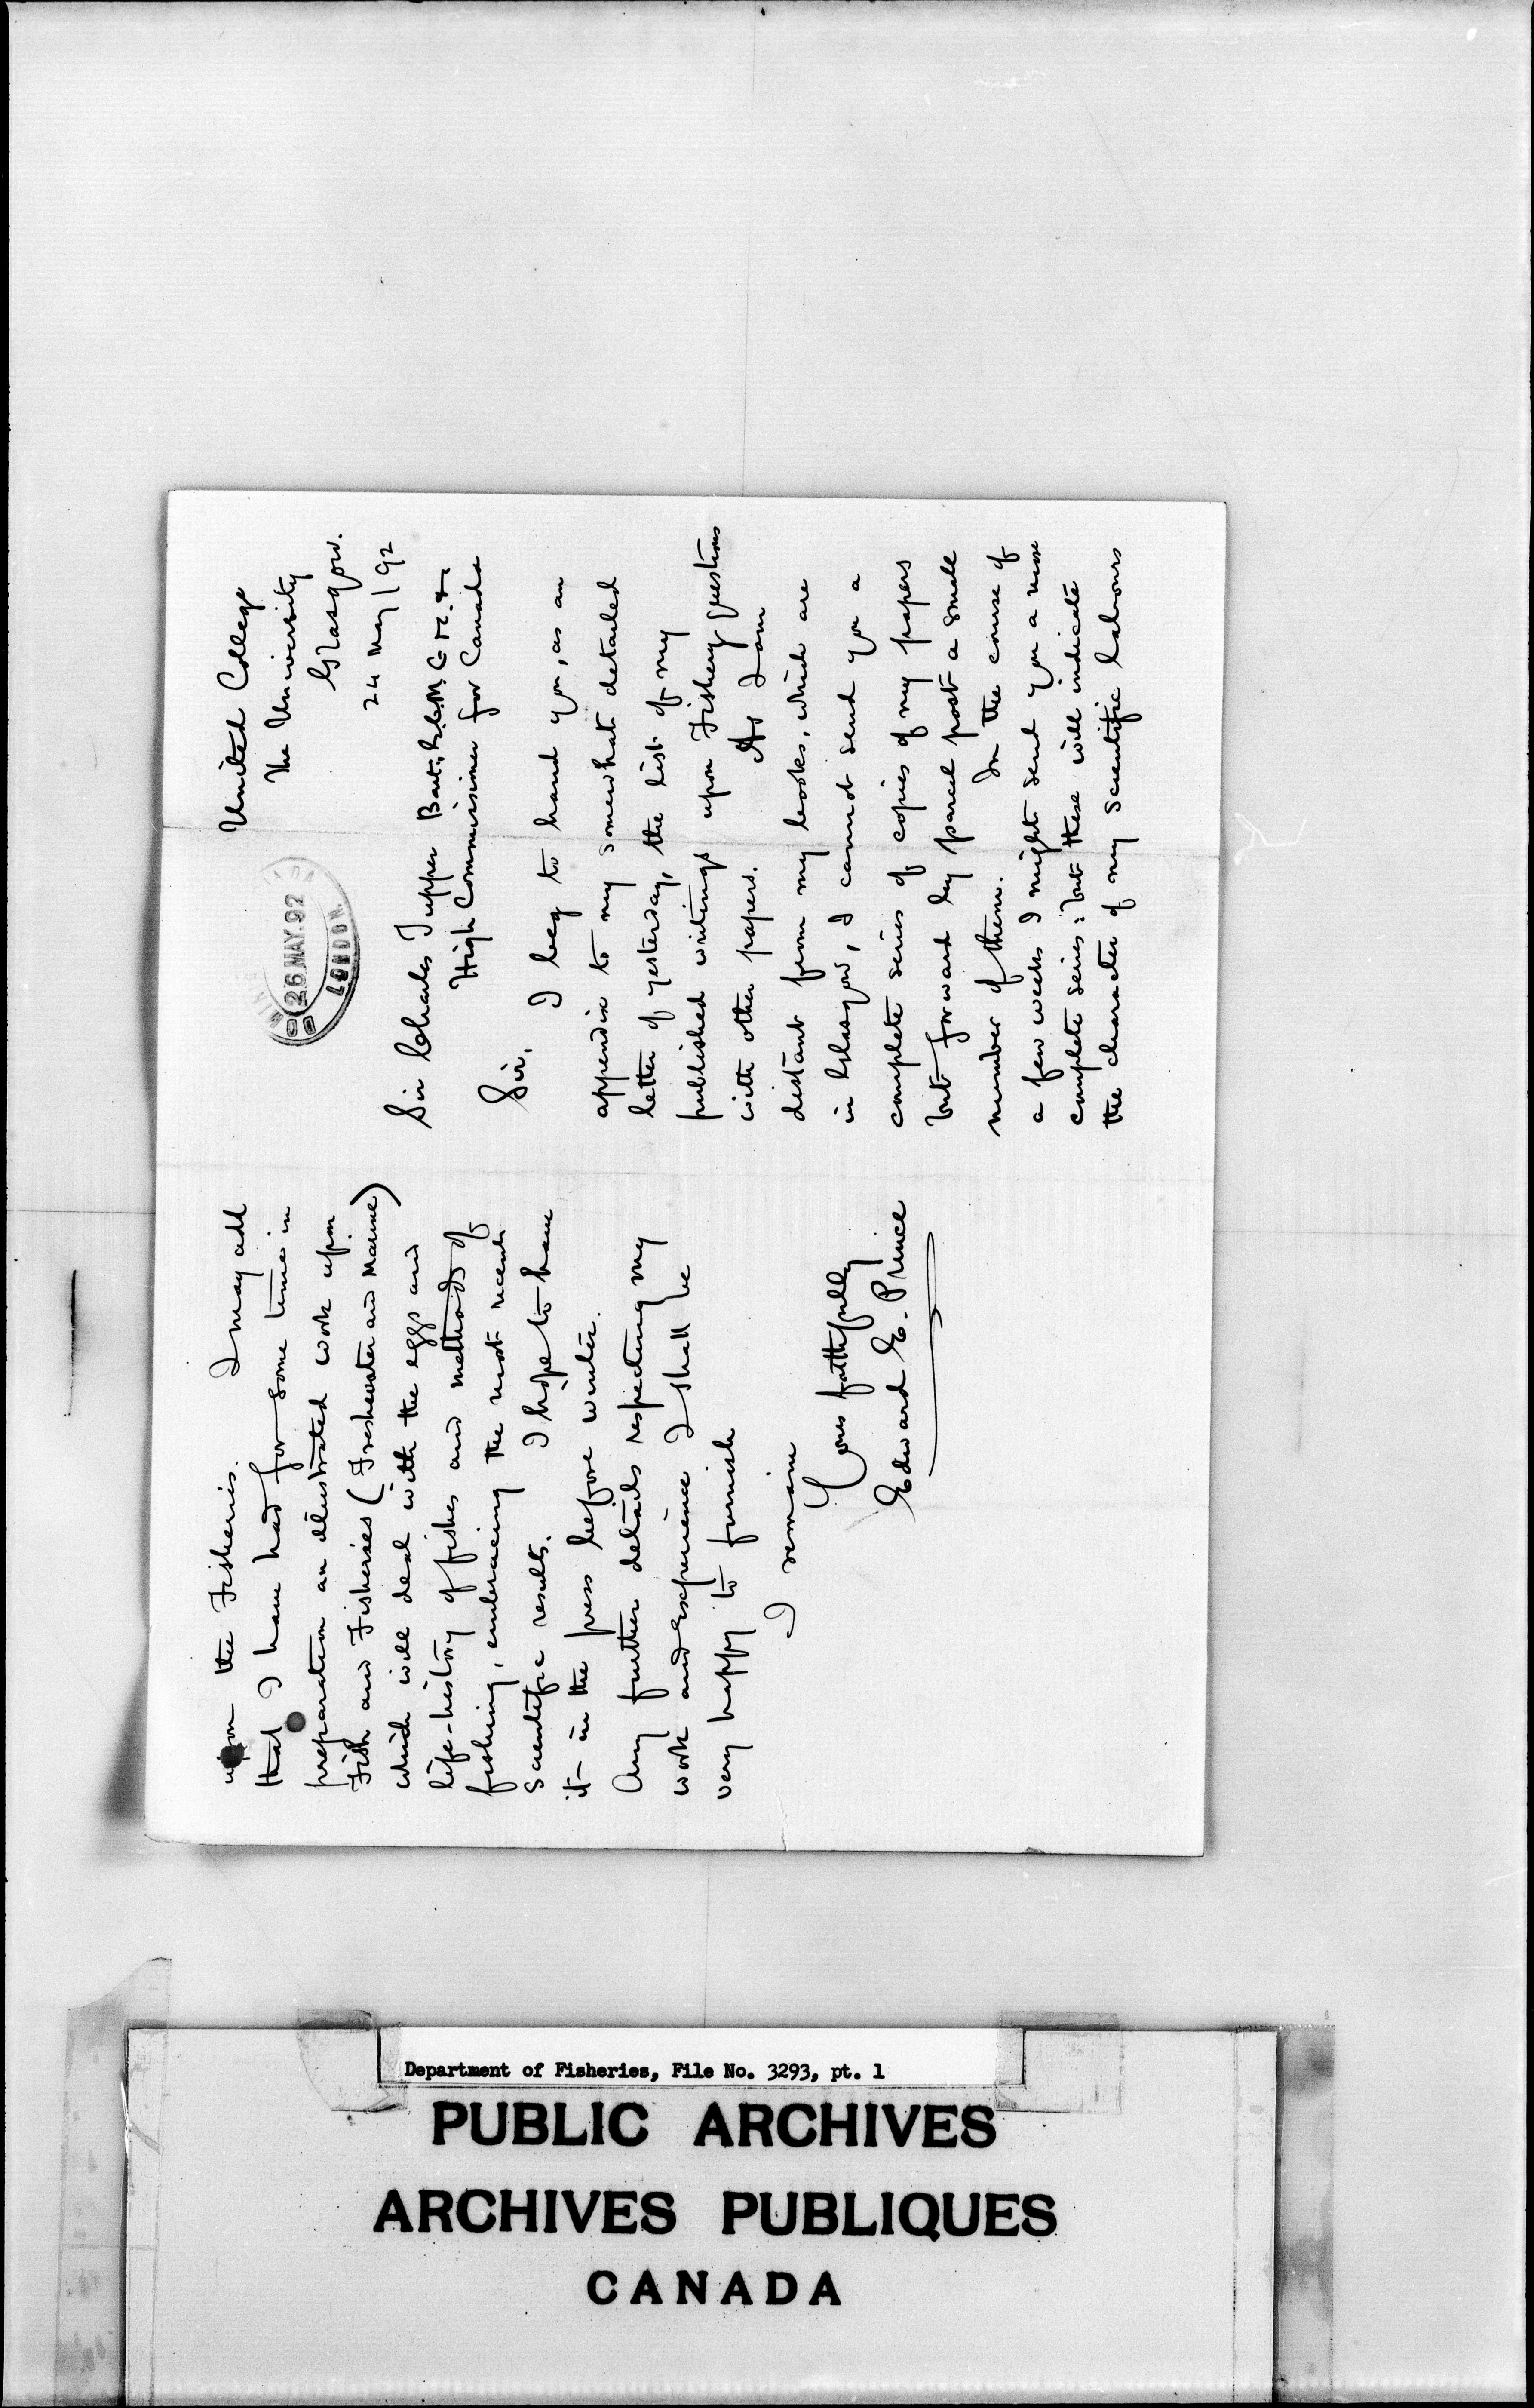 United College
The University
Glasgow.
24 May / 92
26 MAY. 92
LONDON
Sir Charles Tupper Bart., G.C.M.G. &c.
High Commissioner for Canada
Sir,
I beg to hand you, as an
appendix to my somewhat detailed
letter of yesterday, the list of my
published writings upon Fishery questions
with other papers. As I am
distant from my books, which are
in Glasgow, I cannot send you a
complete series of copies of my papers
but forward by parcel post a small
number of them. In the course of
a few weeks I might send you a more
complete series: but these will indicate
the character of my scientific labours
upon the Fisheries. I may add
that I have had for some time in
preparation an illustrated work upon
Fish and Fisheries (Freshwater and Marine)
which will deal with the eggs and
life-history of fishes and methods of
fishing, embracing the most recent
scientific results. I hope to have
it in the press before winter.
Any further details respecting my
work and experience I shall be
very happy to furnish
I remain
Yours faithfully
Edward E. Prince
Department of Fisheries, File No. 3293, pt. 1
PUBLIC ARCHIVES
ARCHIVES PUBLIQUES
CANADA